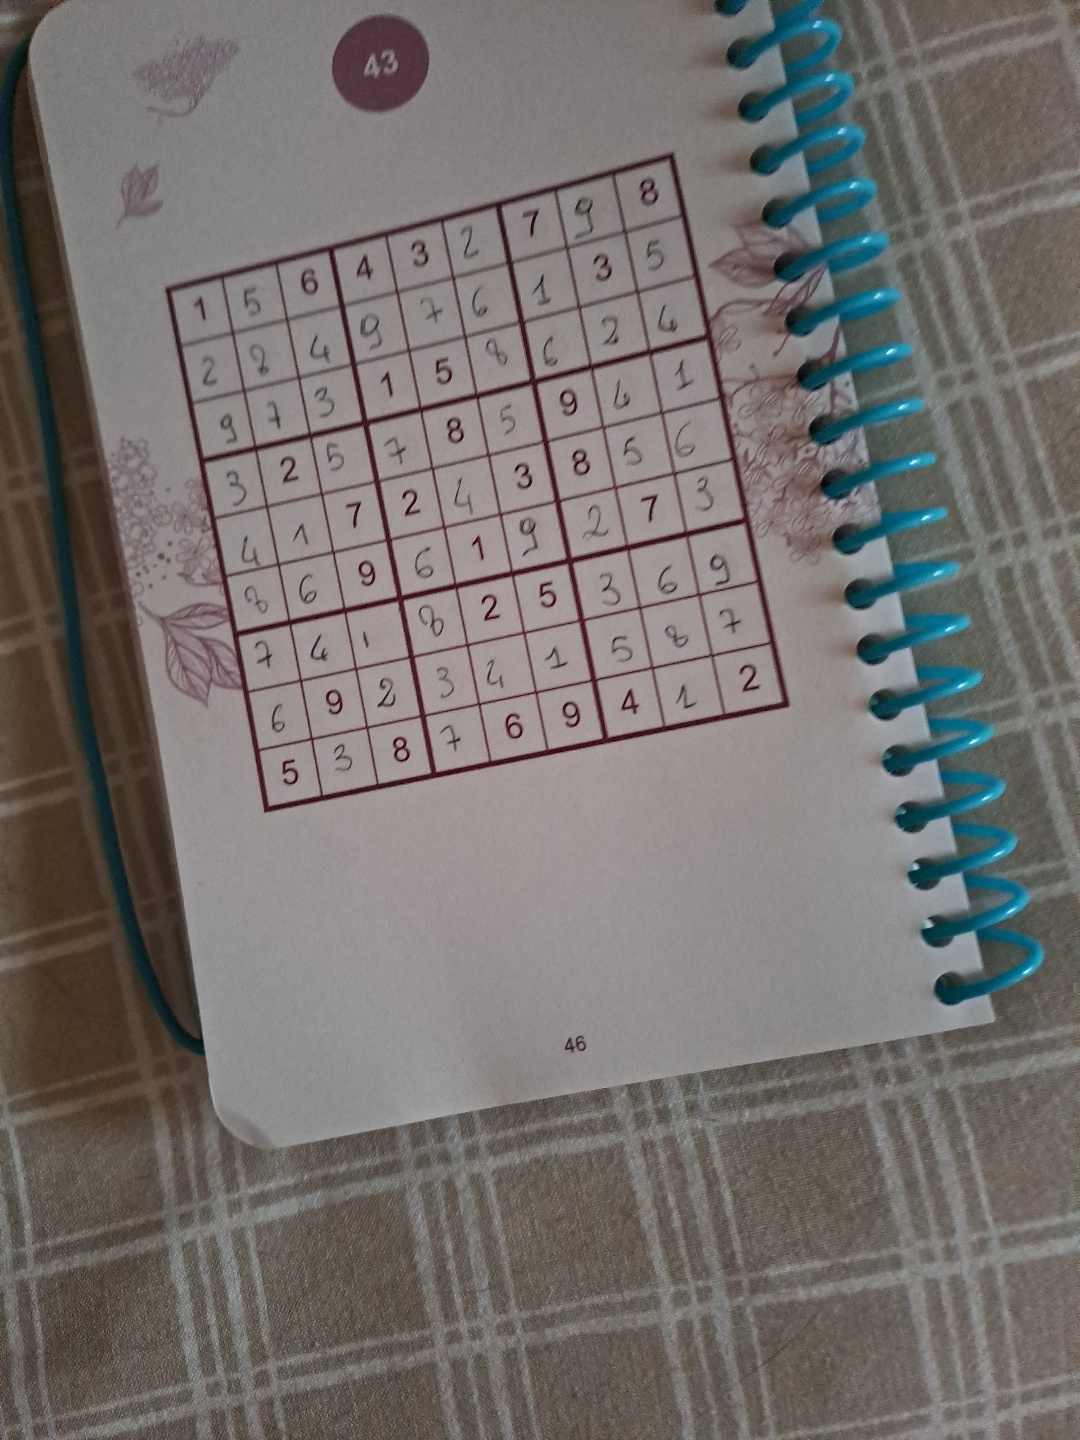 43
1 5 6 4 3 2 7 9 8
2 8 4 9 7 6 1 3 5
9 7 3 1 5 8 6 2 4
3 2 5 7 8 5 9 4 1
4 1 7 2 4 3 8 5 6
8 6 9 6 1 9 2 7 3
7 4 1 8 2 5 3 6 9
6 9 2 3 4 1 5 8 7
5 3 8 7 6 9 4 1 2
46